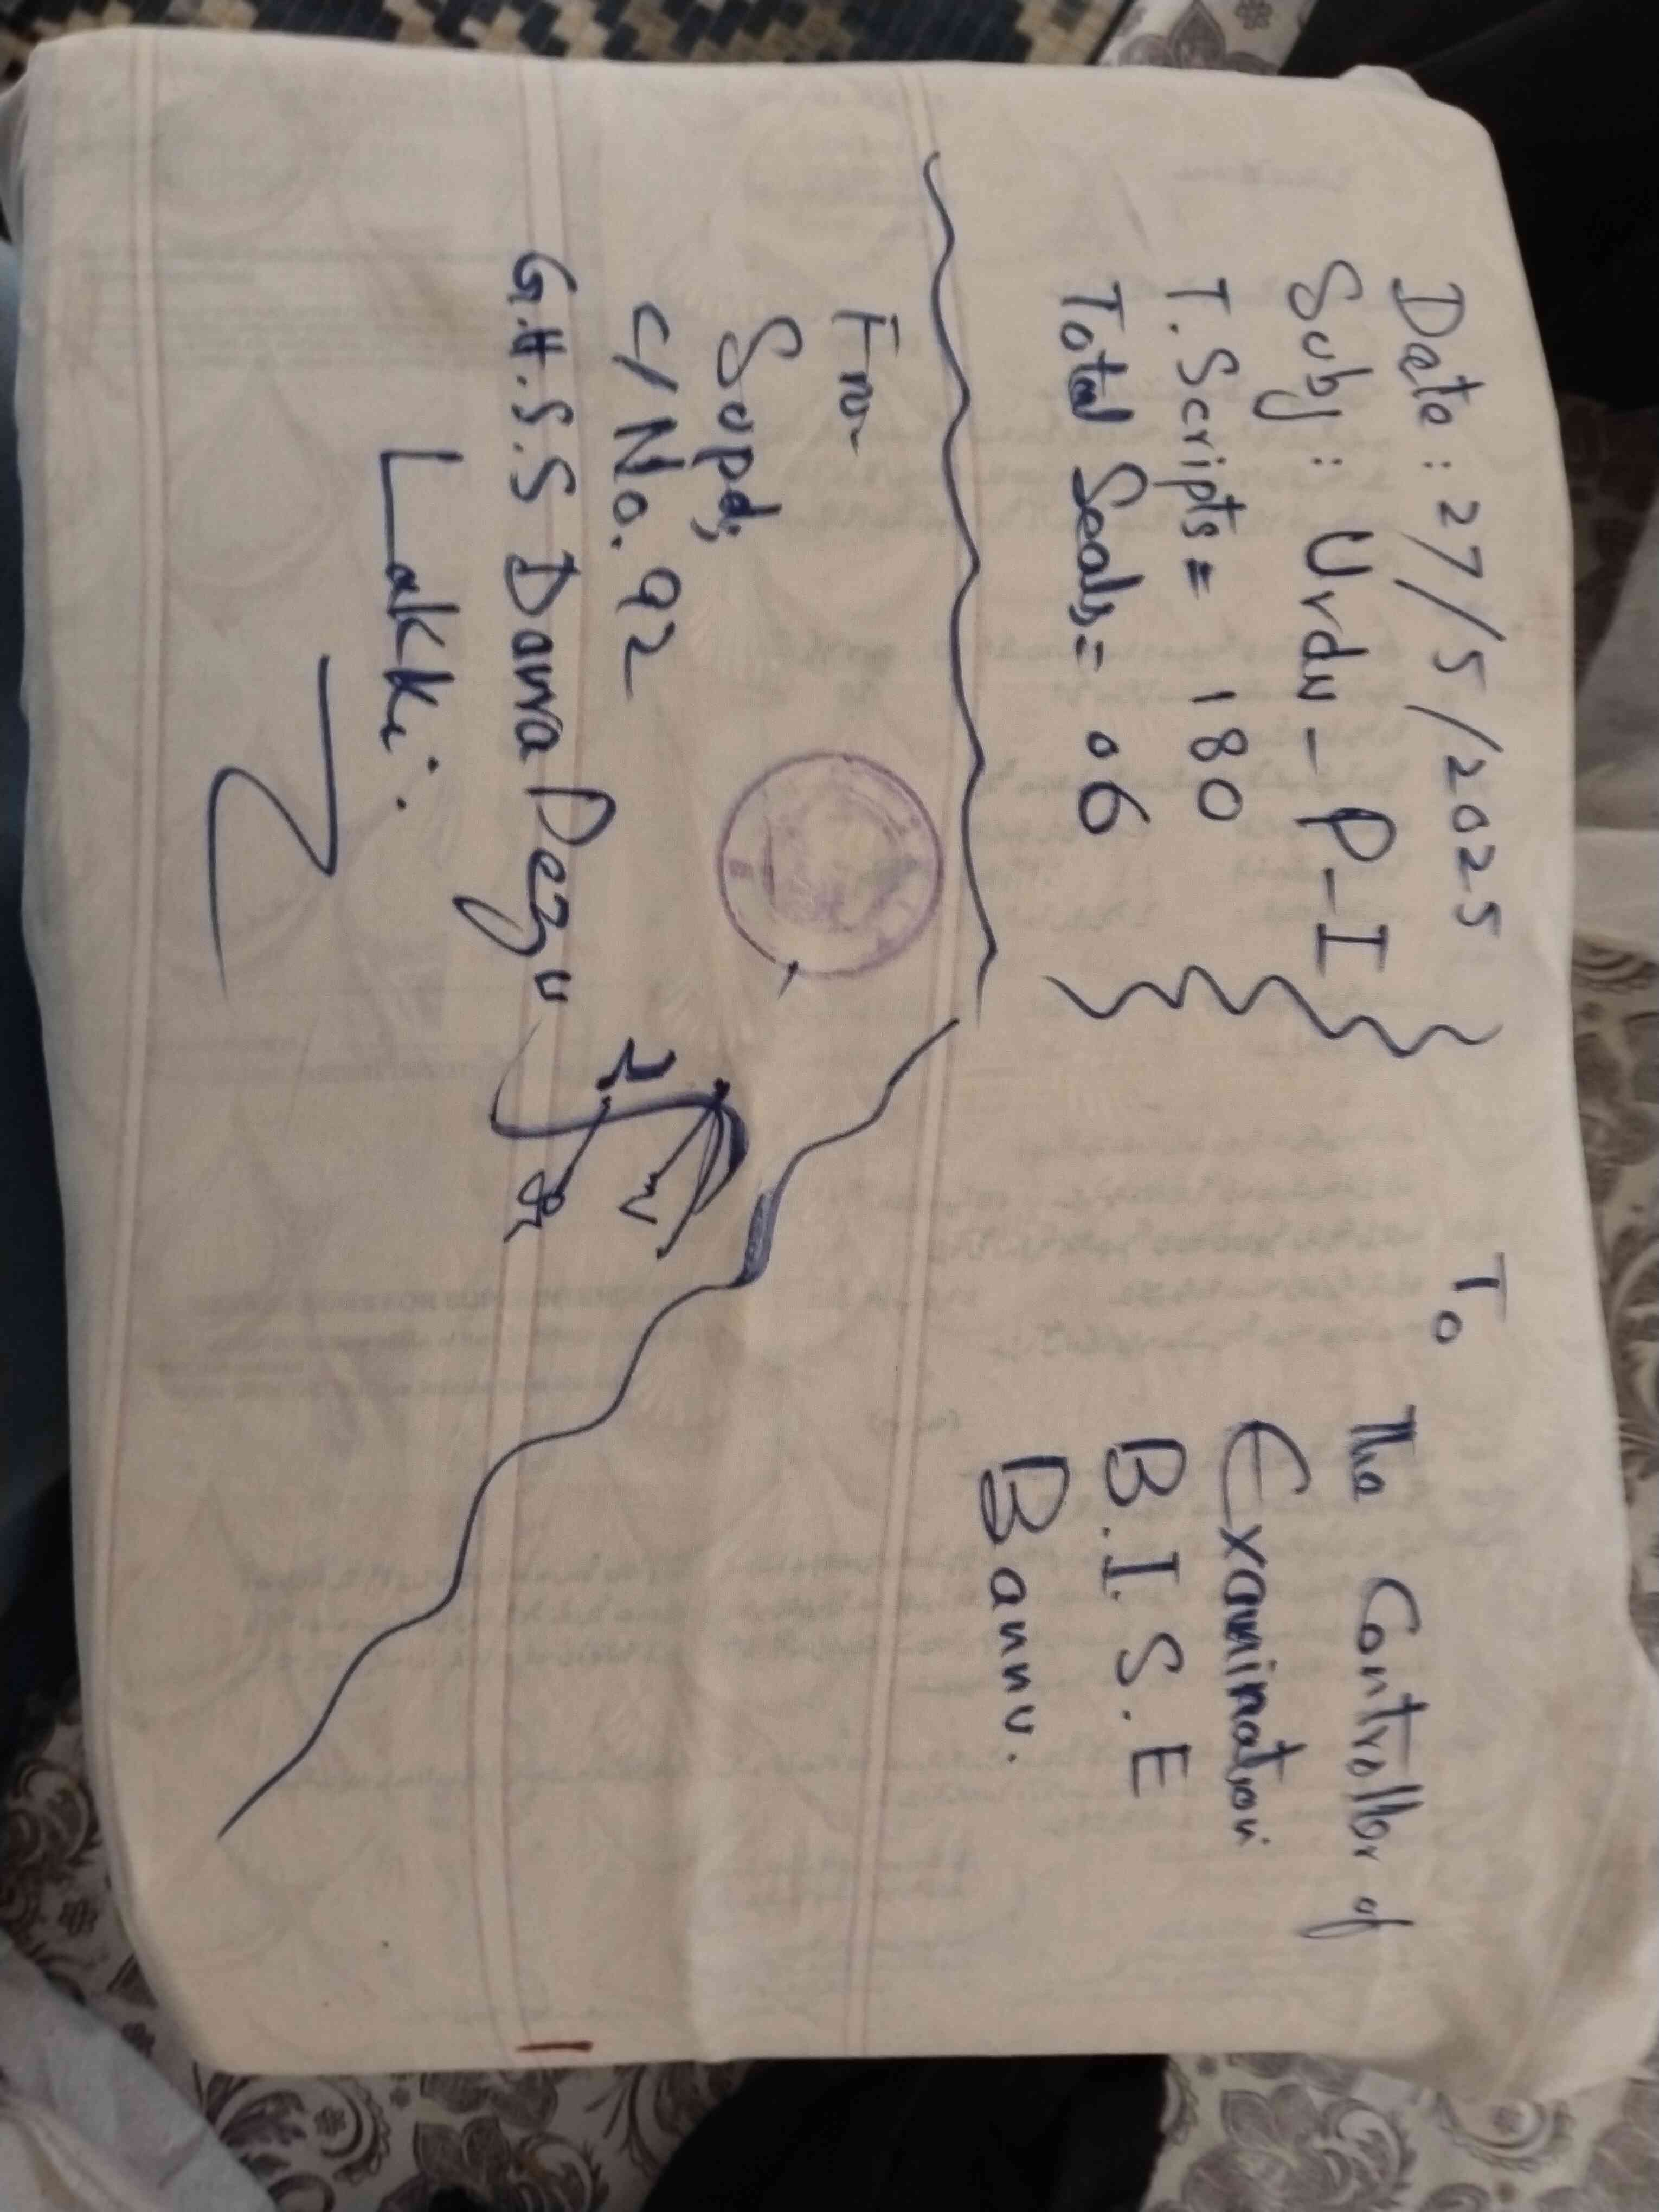 Date: 27/5/2025
Subj: Urdu-P-I
T. Scripts = 180
Total Seals = 06
To
The Controller of
Examination
B.I.S.E
Bannu.
From
Supdt;
C/No. 92
G.H.S.S Darra Pezu
Lakki.